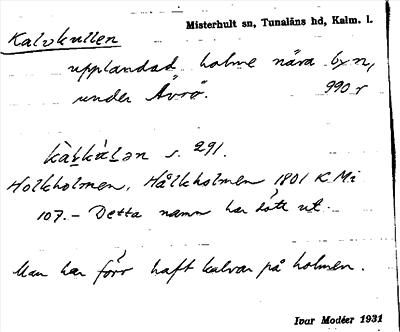 Misterhult sn, Tunaläns hd, Kalm. l.
Kalvkullen
upplandad holme nära byn,
under Ävrö. 990 r
s. 291.
Holkholmen, Hålkholmen 1801 K.Mi
107. – Detta namn har dött ut.
Man har förr haft kalvar på holmen.
Ivar Modéer 1931